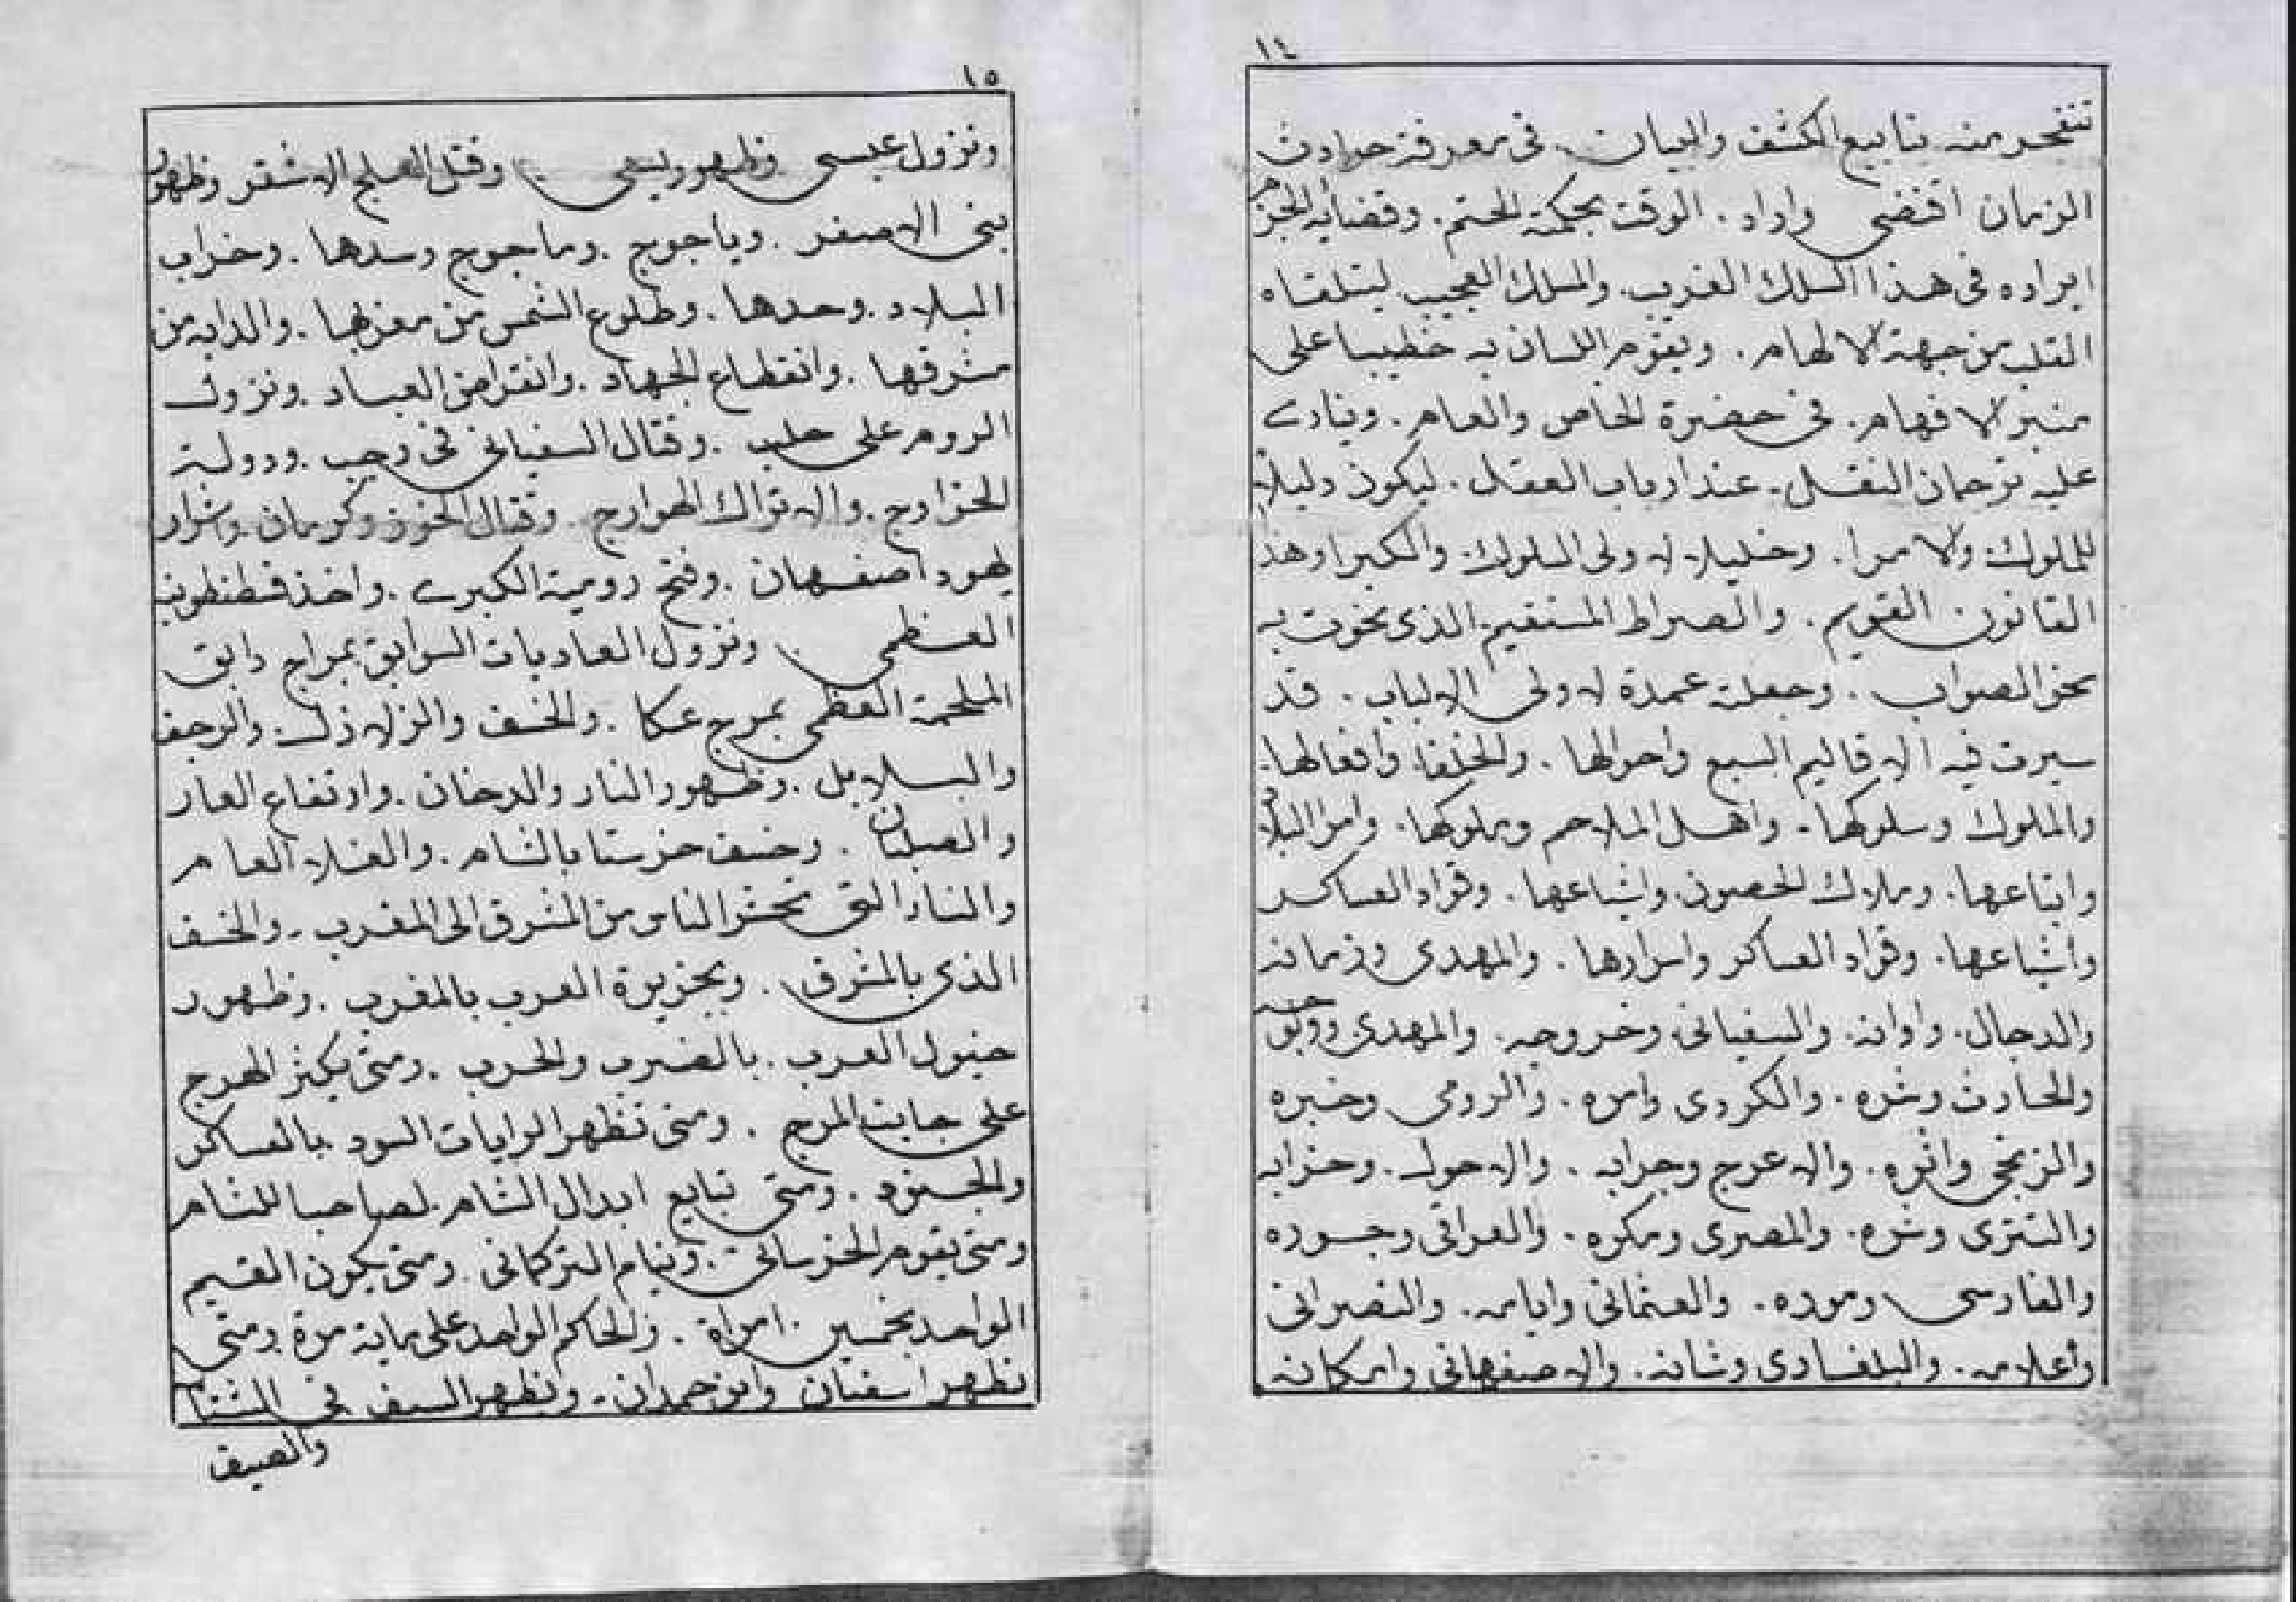 ١٤
تنفجر منه ينابيع الكشف والبيان. في معرفة حوادث
الزمان اقتضى واراد. الوقت بحكمته الحتم. وقضايه الجزم
ايراده في هذا السلك الغريب. والمسلك العجيب. ليتلقاه
القلب من جهة الالهام. ويقوم اللسان به خطيبا على
منبر الافهام. في حضرة الخاص والعام. وينادي
عليه ترجمان النقل. عند ارباب العقل. ليكون دليلا
للملوك والامرا. وخليلا لاولى السلوك. والكبرا وهذا
القانون القويم. والصراط المستقيم. الذى نحوت به
نحو الصواب. وجعلته عمدة لاولى الالباب. قد
سيرت فيه الاقاليم السبع واحوالها. والخلفا وافعالها.
والملوك وسلوكها. واهل الملاحم وملوكها. وامر البلاد
واتباعها. وملاك الحصون. واشياعها. وقواد العساكر
وأشياعها. وقواد العساكر واسرارها. والمهدى وزمانه
والدجال. واوانه. والسفيانى وخروجه. والمهدى
والحارث وشره. والكردى وامره. والرومي وخبره
والزنجي واثره. والاعرج وجرابه. والاحول. وخرابه
والتترى وشره. والمصرى ومكره. والعراقى وجوده
والفارسى وموده. والعثمانى وايامه. والنصرانى
وأعلامه. والبلغارى وشانه. والاصفهانى وامكانه
١٥
ونزول عيسى وظهور يحيى وقتل العلج الاشقر وظهور
بنى الاصفر. وياجوج. وماجوج وسدها. وخراب
البلاد. وحدها. وطلوع الشمس من مغربها. والدابه من
مشرقها. وانقطاع الجهاد. وانقراض العباد. ونزول
الروم على حلب. وقتال السفيانى فى رجب. ودولة
الخوارج. والاتراك الهوارج. وقتال الخوز وكرمان. وشرار
يهود اصفهان. وفتح روميه الكبرى. واخذ قسطنطونيه
العظمى. ونزول العاديات السوابق بمراج دابق
الملحمة العظمى بمرج عكا. والخسف والزلازل. والرجف
والبلابل. وظهور النار والدخان. وارتفاع العار
والصلبان. وخسف حرستا بالشام. والغلا العام
والنار التى تحشر الناس من المشرق الى المغرب. والخسف
الذى بالمشرق. وبجزيرة العرب بالمغرب. وظهور
خيول العرب. بالضرب والحرب. ومتى يكثر الهرج
على جابت المرج. ومتى تظهر الرايات السود بالعساكر
والجنود. ومتى تبايع ابدال الشام. لصاحبا للشام
ومتى يقوم الخرسانى. وينام التركمانى. ومتى يكون القيم
الواحد بخمسين امراة. والحاكم الواحد على ماية مرة. ومتى
تظهر اسفتان وابن حمدان. ويظهر السيف في الشتا
والصيف